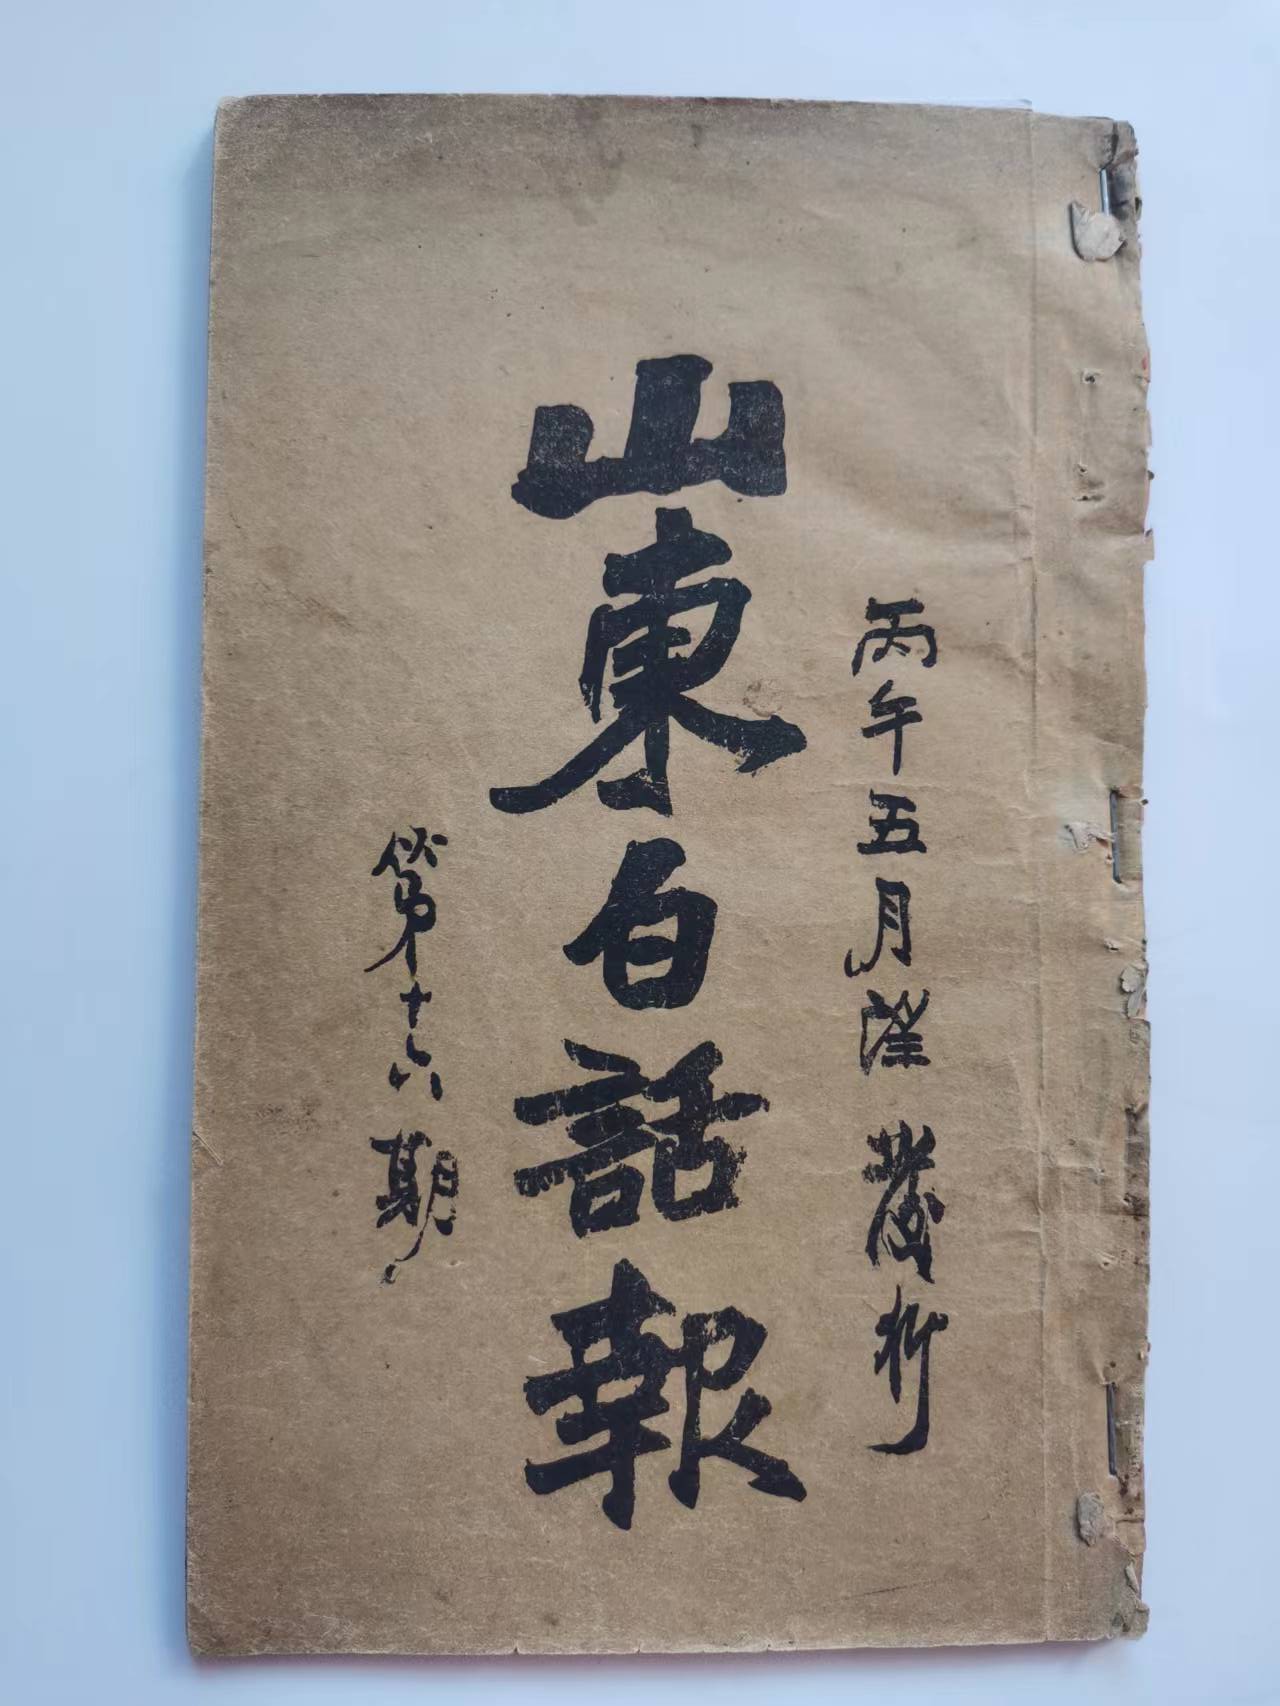 丙午五月望發行
山東白話報
第十六期